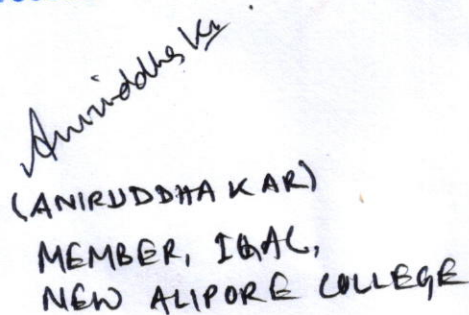 Aniruddha Kr
(ANIRUDDHA KAR)
MEMBER, IQAC,
NEW ALIPORE COLLEGE